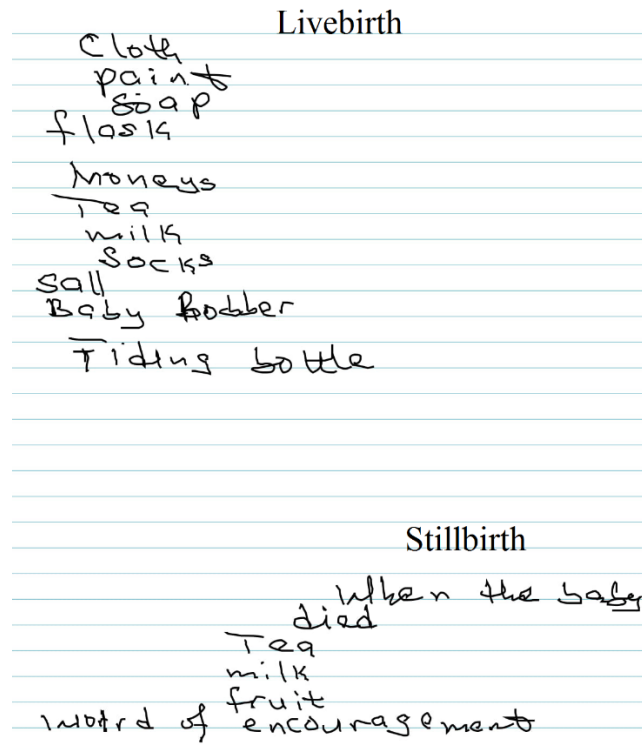 Livebirth
Cloth
paint
soap
flask
Moneys
Tea
milk
Socks
sall
Baby Robber
Tiding bottle
Stillbirth
When the baby
died
Tea
milk
fruit
word of encouragement